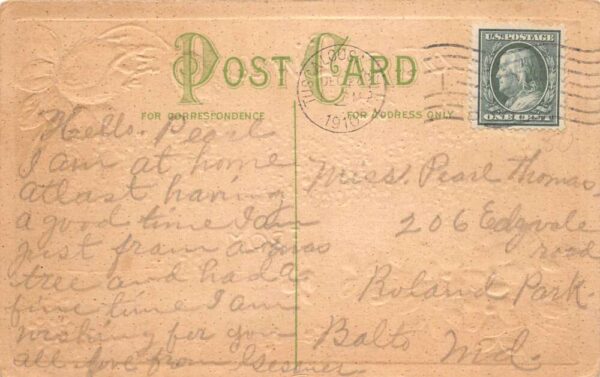 POST CARD
FOR CORRESPONDENCE
FOR ADDRESS ONLY
U.S. POSTAGE
ONE CENT
1910
Hello. Pearl
I am at home
atlast having
a good time I am
just from a xmas
tree and had a
fine time I am
wishing for you
all love from
Miss. Pearl Thomas.
206 Edgvale
road
Roland Park.
Balto Md.